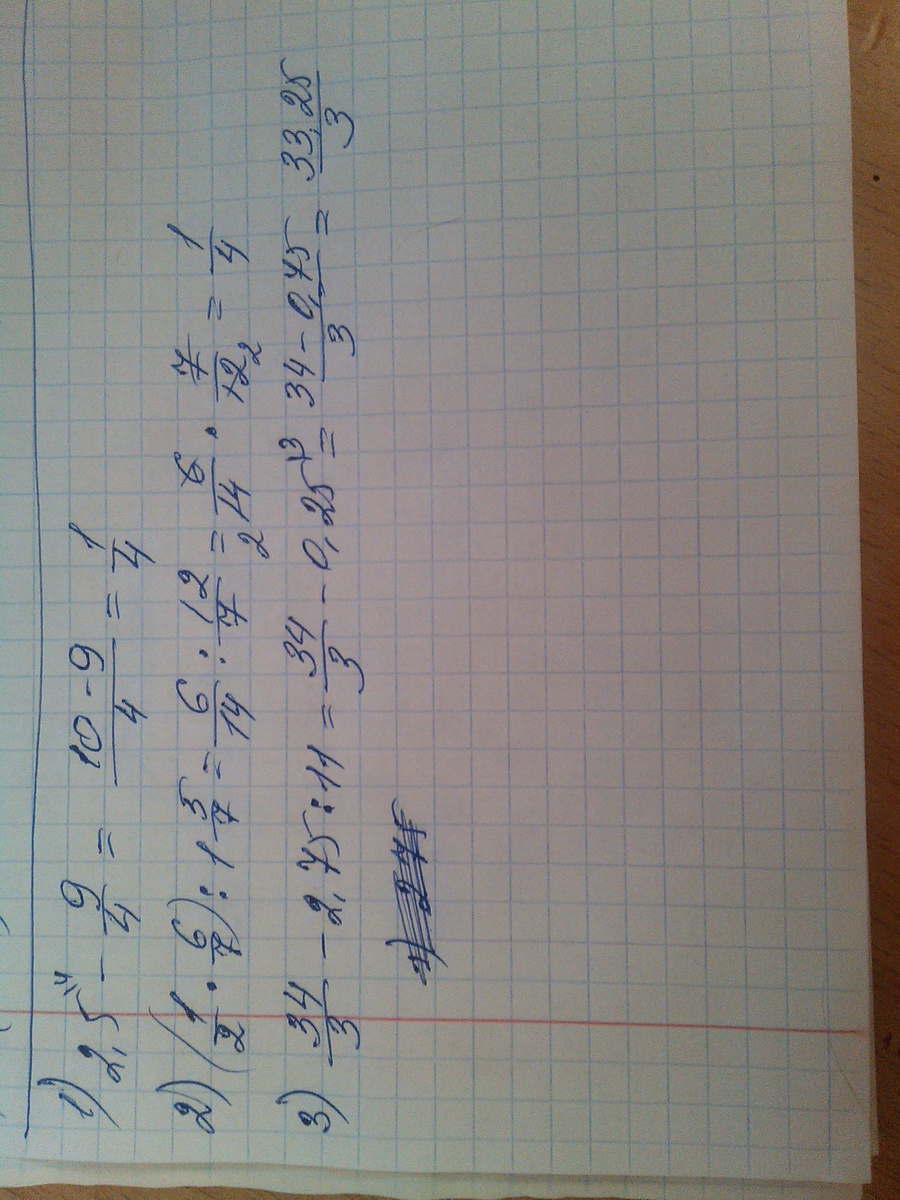 1) 2,5^{\4} - \frac{9}{4} = \frac{10-9}{4} = \frac{1}{4}
2) (\frac{1}{2} \cdot \frac{6}{7}) : 1\frac{5}{7} = \frac{6}{14} : \frac{12}{7} = \frac{6}{14} \cdot \frac{7}{12} = \frac{1}{4}
3) \frac{34}{3} - 2,75 : 11 = \frac{34}{3} - 0,25^{\3} = \frac{34-0,75}{3} = \frac{33,25}{3}